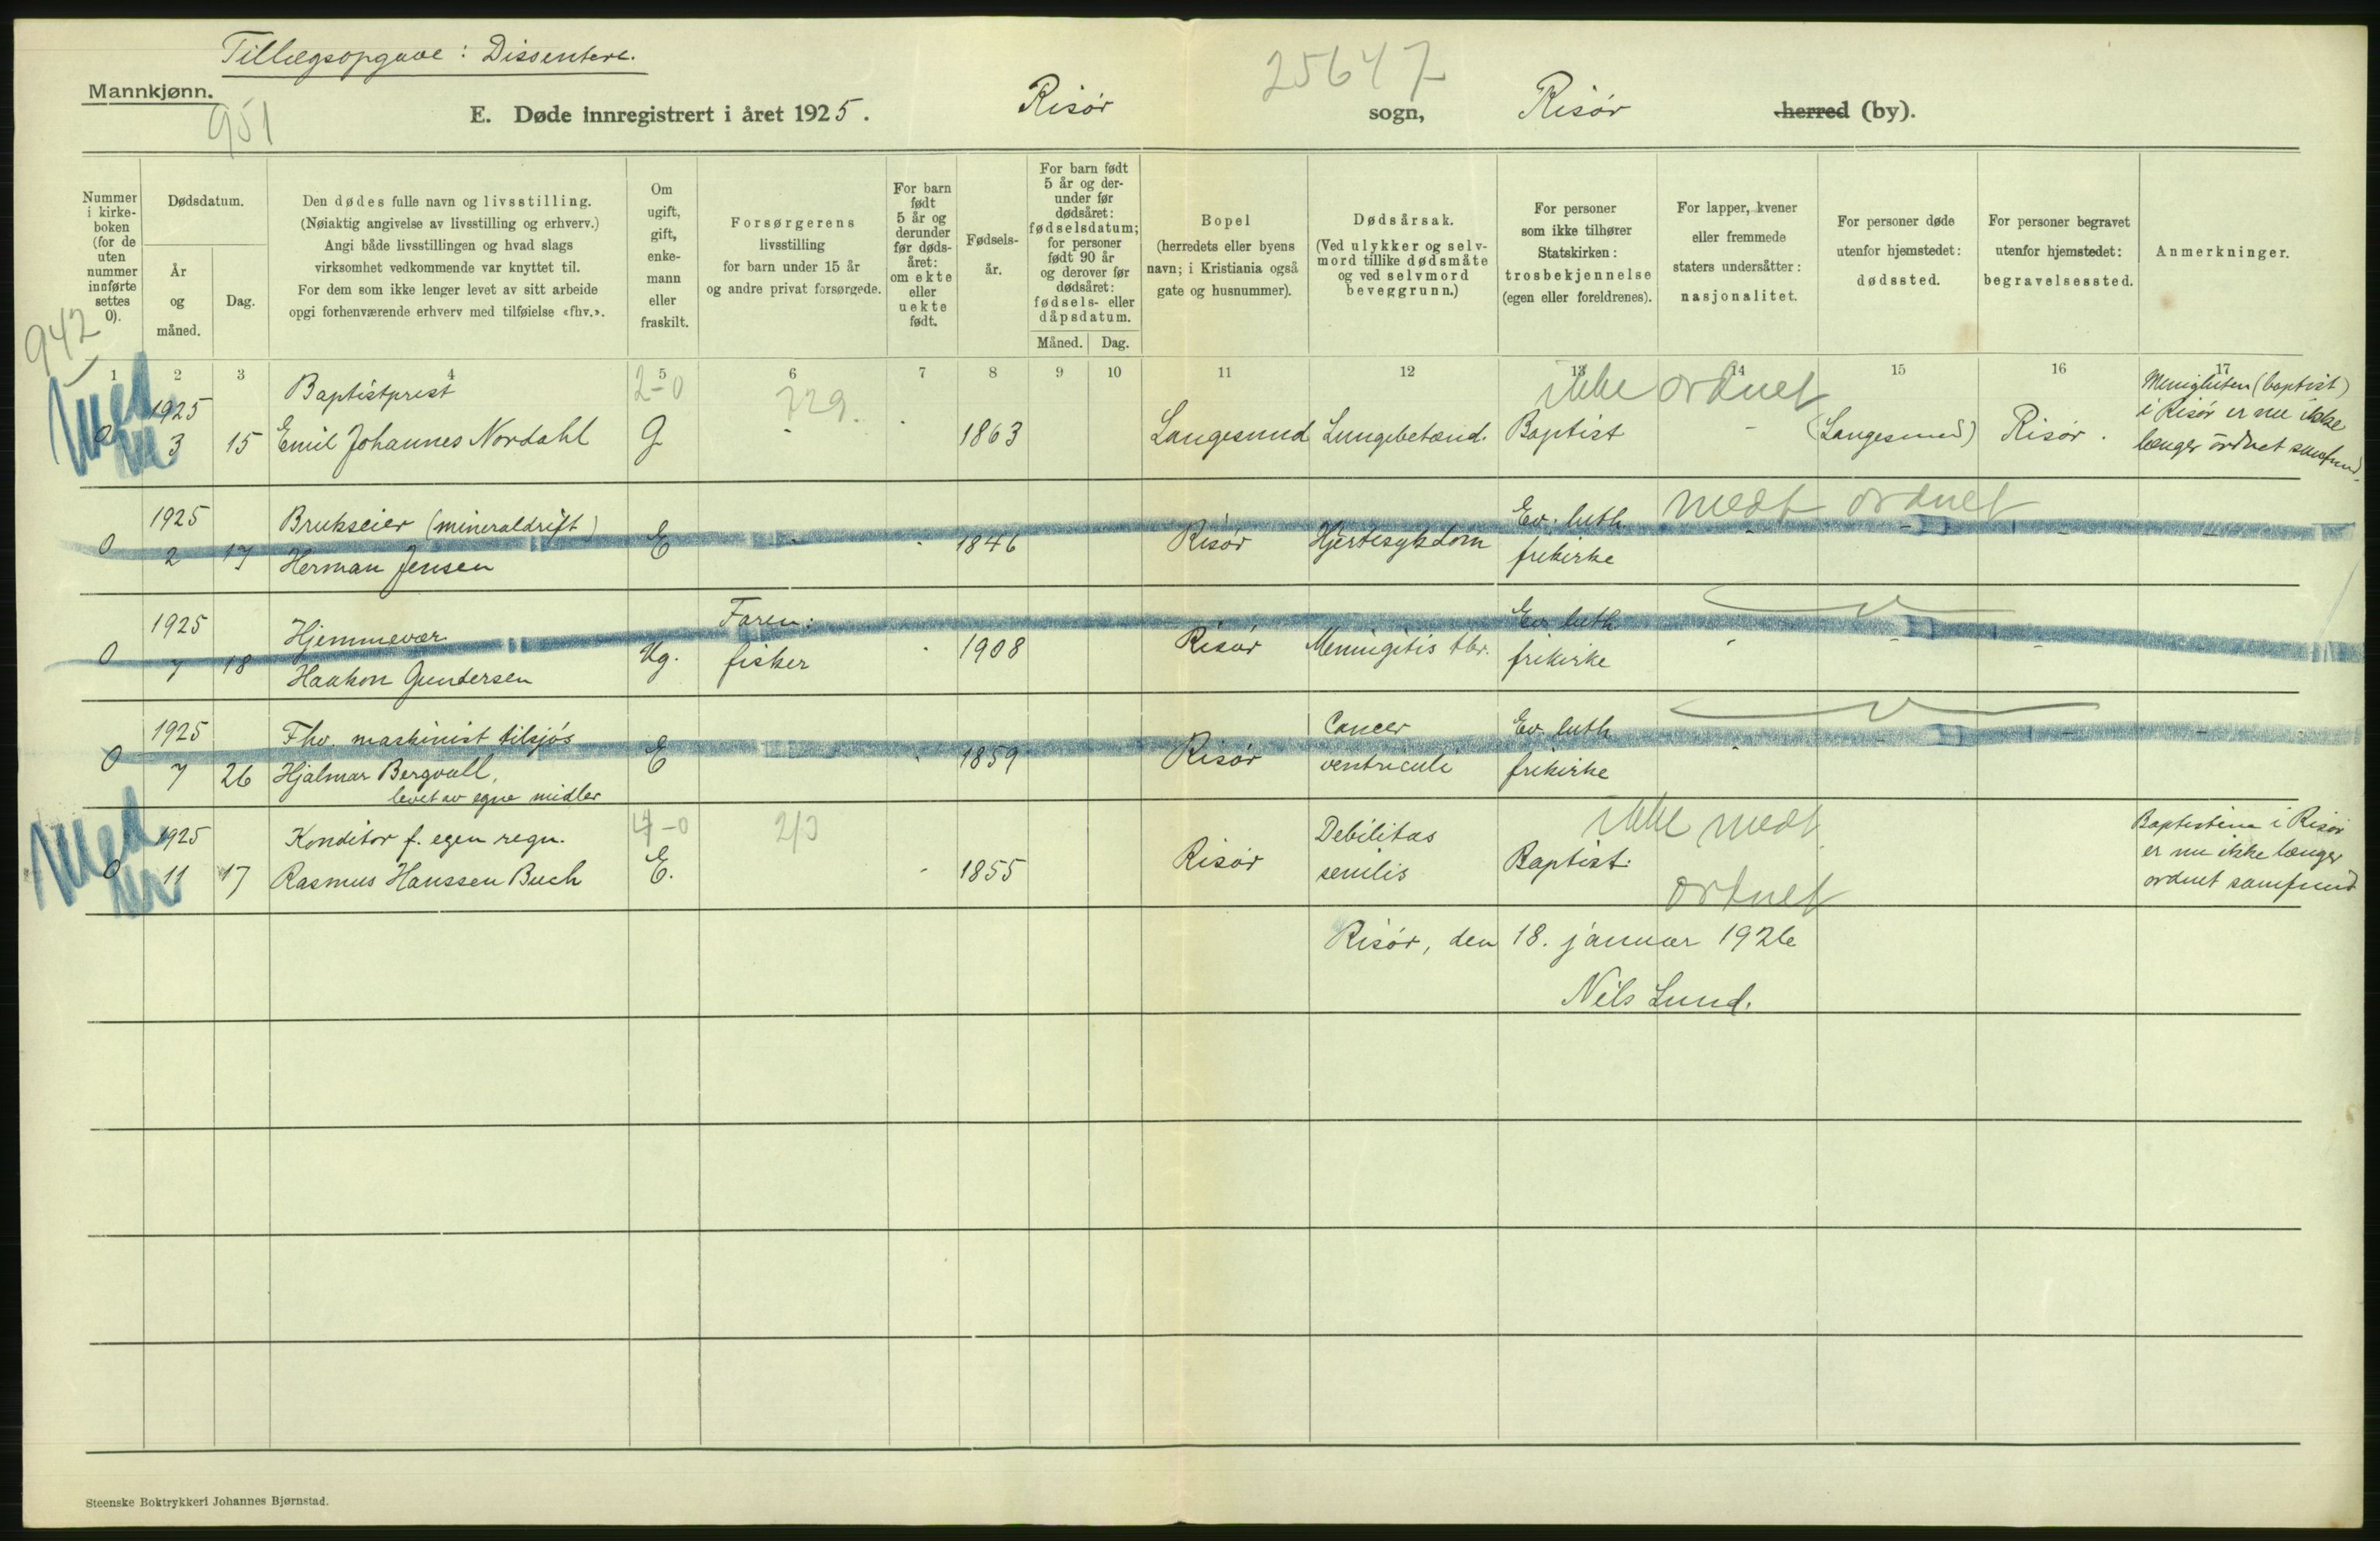 Tillægsopgave: Dissentere.
25647
Mannkjønn.
951
E. Døde innregistrert i året 1925. Risør sogn, Risør herred (by).
Nummer i kirke-boken (for de uten nummer innførte settes 0).
Dødsdatum.
År og måned.
Dag.
Den dødes fulle navn og livsstilling.
(Nøiaktig angivelse av livsstilling og erhverv.)
Angi både livsstillingen og hvad slags
virksomhet vedkommende var knyttet til.
For dem som ikke lenger levet av sitt arbeide
opgi forhenværende erhverv med tilføielse «fhv.».
Om ugift, gift, enke-mann eller fraskilt.
Forsørgerens
livsstilling
for barn under 15 år
og andre privat forsørgede.
For barn født 5 år og derunder før døds-året: om ekte eller uekte født.
Fødsels-år.
For barn født 5 år og der-under før dødsåret: fødselsdatum; for personer født 90 år og derover før dødsåret: fødsels- eller dåpsdatum.
Måned. Dag.
Bopel
(herredets eller byens
navn; i Kristiania også
gate og husnummer).
Dødsårsak.
(Ved ulykker og selv-
mord tillike dødsmåte
og ved selvmord
beveggrunn.)
For personer
som ikke tilhører
Statskirken:
trosbekjennelse
(egen eller foreldrenes).
For lapper, kvener
eller fremmede
staters undersåtter:
nasjonalitet.
For personer døde
utenfor hjemstedet:
dødssted.
For personer begravet
utenfor hjemstedet:
begravelsessted.
Anmerkninger.
942
1 2 3 4 5 6 7 8 9 10 11 12 13 14 15 16 17
1925 Baptistprest 2-0 729. ikke ordnet Menigheten (baptist)
0 3 15 Emil Johannes Nordahl G - - 1863 Langesund Lungebetænd. Baptist - (Langesund) Risør. i Risør er nu ikke
længer ordnet samfund
1925 Brukseier (mineraldrift) Ev. luth. medt ordnet
0 2 17 Herman Jensen E - - 1846 Risør Hjertesykdom frikirke - - - -
1925 Hjemmevær Faren: Ev. luth.
0 7 18 Haakon Gundersen Ug. fisker - 1908 Risør Meningitis tbr. frikirke - - -
1925 Fhv. maskinist tilsjøs Cancer Ev. luth.
0 7 26 Hjalmar Bergvall, E - 1859 Risør ventriculi frikirke - - - -
levet av egne midler
1925 Konditor f. egen regn. 4-0 213 Debilitas ikke medt Baptisterne i Risør
0 11 17 Rasmus Hanssen Buch E. - 1855 Risør senilis Baptist. ordnet er nu ikke længer
ordnet samfund
Risør, den 18. januar 1926
Nils Lund.
Steenske Boktrykkeri Johannes Bjørnstad.